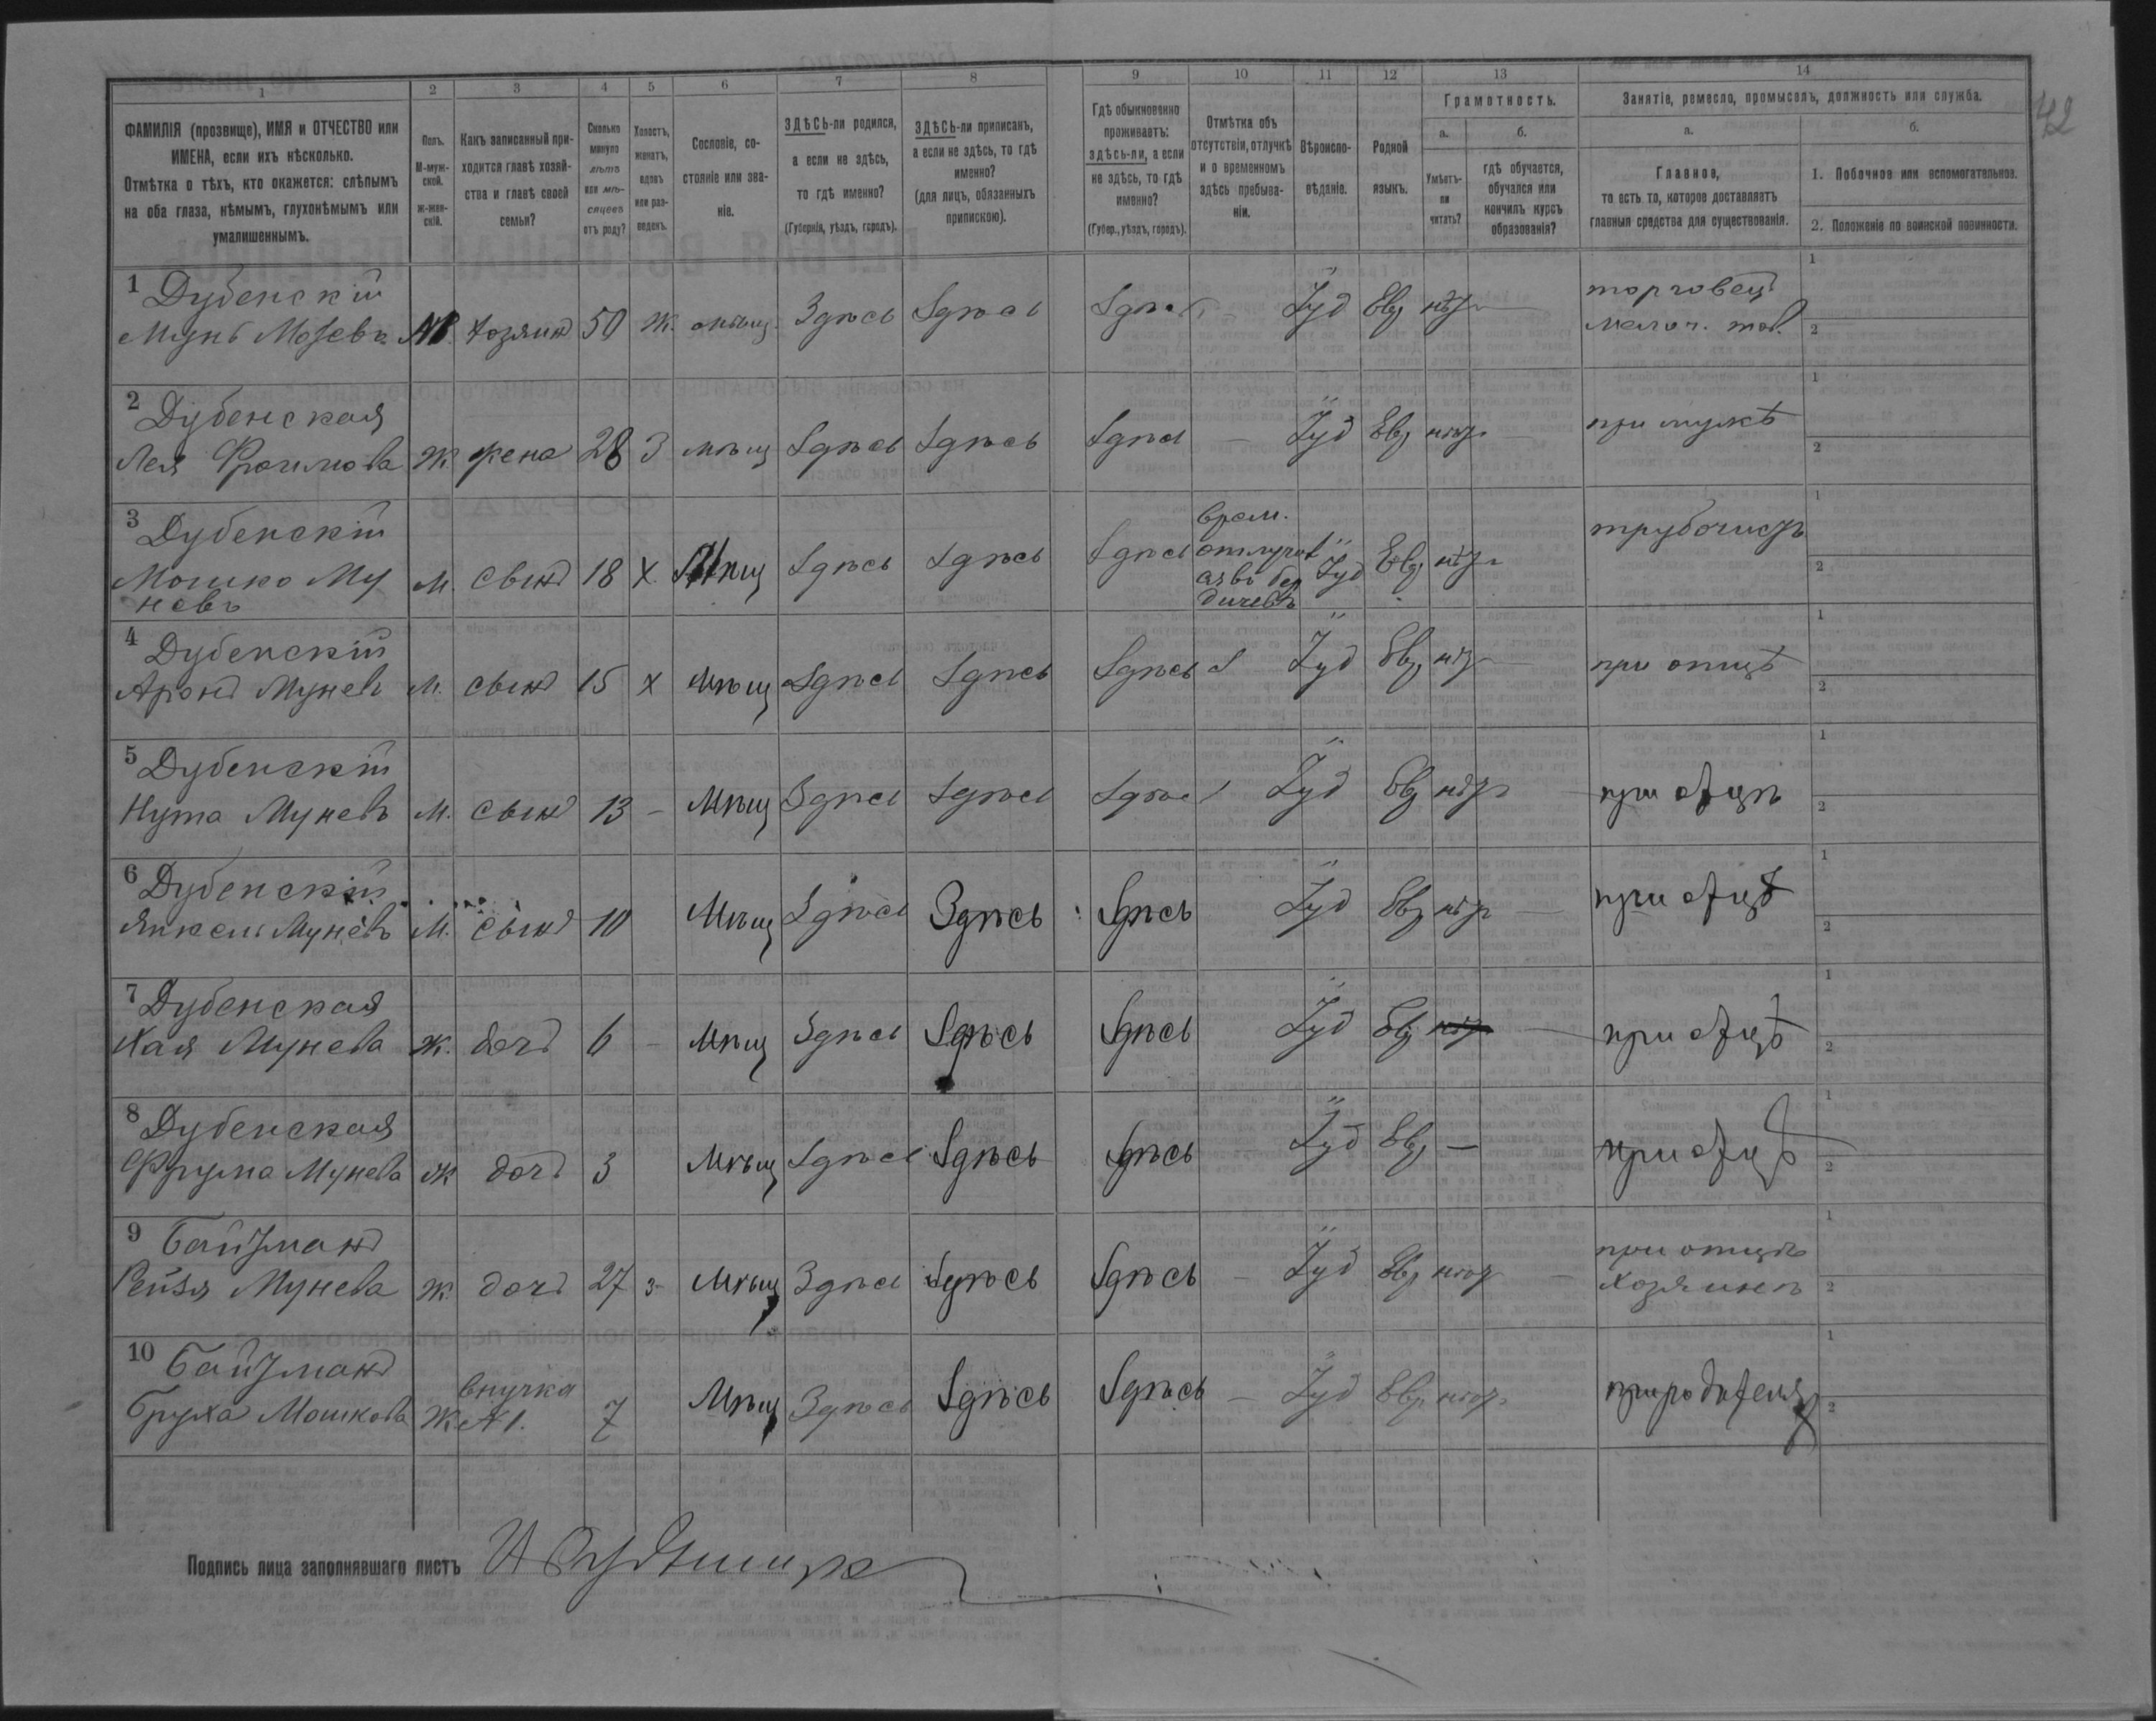 42
1 2 3 4 5 6 7 8 9 10 11 12 13 14
ФАМИЛІЯ (прозвище), ИМЯ и ОТЧЕСТВО или
ИМЕНА, если ихъ нѣсколько.
Отмѣтка о тѣхъ, кто окажется: слѣпымъ
на оба глаза, нѣмымъ, глухонѣмымъ или
умалишеннымъ.
Полъ.
М-муж-
ской.
ж-жен-
скій.
Какъ записанный при-
ходится главѣ хозяй-
ства и главѣ своей
семьи?
Сколько
минуло
лѣтъ
или мѣ-
сяцевъ
отъ роду?
Холостъ,
женатъ,
вдовъ
или раз-
веденъ.
Сословіе, со-
стояніе или зва-
ніе.
ЗДѢСЬ-ли родился,
а если не здѣсь,
то гдѣ именно?
(Губернія, уѣздъ, городъ).
ЗДѢСЬ-ли приписанъ,
а если не здѣсь, то гдѣ
именно?
(для лицъ, обязанныхъ
припискою).
Гдѣ обыкновенно
проживаетъ:
здѣсь-ли, а если
не здѣсь, то гдѣ
именно?
(Губер., уѣздъ, городъ).
Отмѣтка объ
отсутствіи, отлучкѣ
и о временномъ
здѣсь пребыва-
ніи.
Вѣроиспо-
вѣданіе.
Родной
языкъ.
Грамотность.
а.
Умѣетъ-
ли
читать?
б.
гдѣ обучается,
обучался или
кончилъ курсъ
образованія?
Занятіе, ремесло, промыселъ, должность или служба.
а.
Главное,
то есть то, которое доставляетъ
главныя средства для существованія.
б.
1. Побочное или вспомогательное.
2. Положеніе по воинской повинности.
1 Дубенскій торговец 1
Мунь Мо Ж. хозяинъ 50 ж. мѣщ. Здѣсь Здѣсь Здѣсь Іуд Евр нѣтъ мелоч. тов. 2
2 Дубенская 1
Лея Фроимова Ж. жена 28 З мѣщ Здѣсь Здѣсь Здѣсь — Іуд Евр нѣтъ — при мужѣ 2
3 Дубенскій врем. 1
Мошко Му М. сынъ 18 Х. Мѣщ Здѣсь Здѣсь Здѣсь отлучил Іуд Евр нѣтъ трубочистъ 2
невъ ся въ Бер
дичевъ
4 Дубенскій 1
Аронъ Муневъ М. сынъ 15 х Мѣщ Здѣсь Здѣсь Здѣсь Іуд Евр нѣтъ — при отцѣ 2
5 Дубенскій 1
Нута Муневъ М. сынъ 13 — Мѣщ Здѣсь Здѣсь Здѣсь Іуд Евр нѣтъ — при отцѣ 2
6 Дубенскій 1
Янкель Муневъ М. сынъ 10 Мѣщ Здѣсь Здѣсь Здѣсь Іуд Евр нѣтъ — при отцѣ 2
7 Дубенская 1
Хая Мунева Ж. дочь 6 — Мѣщ Здѣсь Здѣсь Здѣсь Іуд Евр нѣтъ — при отцѣ 2
8 Дубенская 1
Фрума Мунева Ж дочь 3 Мѣщ Здѣсь Здѣсь Здѣсь Іуд Евр — при отцѣ 2
9 Байзманъ при отцѣ 1
Рейзя Мунева Ж. дочь 27 з. Мѣщ Здѣсь Здѣсь Здѣсь — Іуд Евр нѣтъ — хозяинѣ 2
10 Байзманъ внучка 1
Бруха Мошкова Ж. №1. 7 Мѣщ Здѣсь Здѣсь Здѣсь — Іуд Евр. нѣтъ 2
Подпись лица заполнявшаго листъ